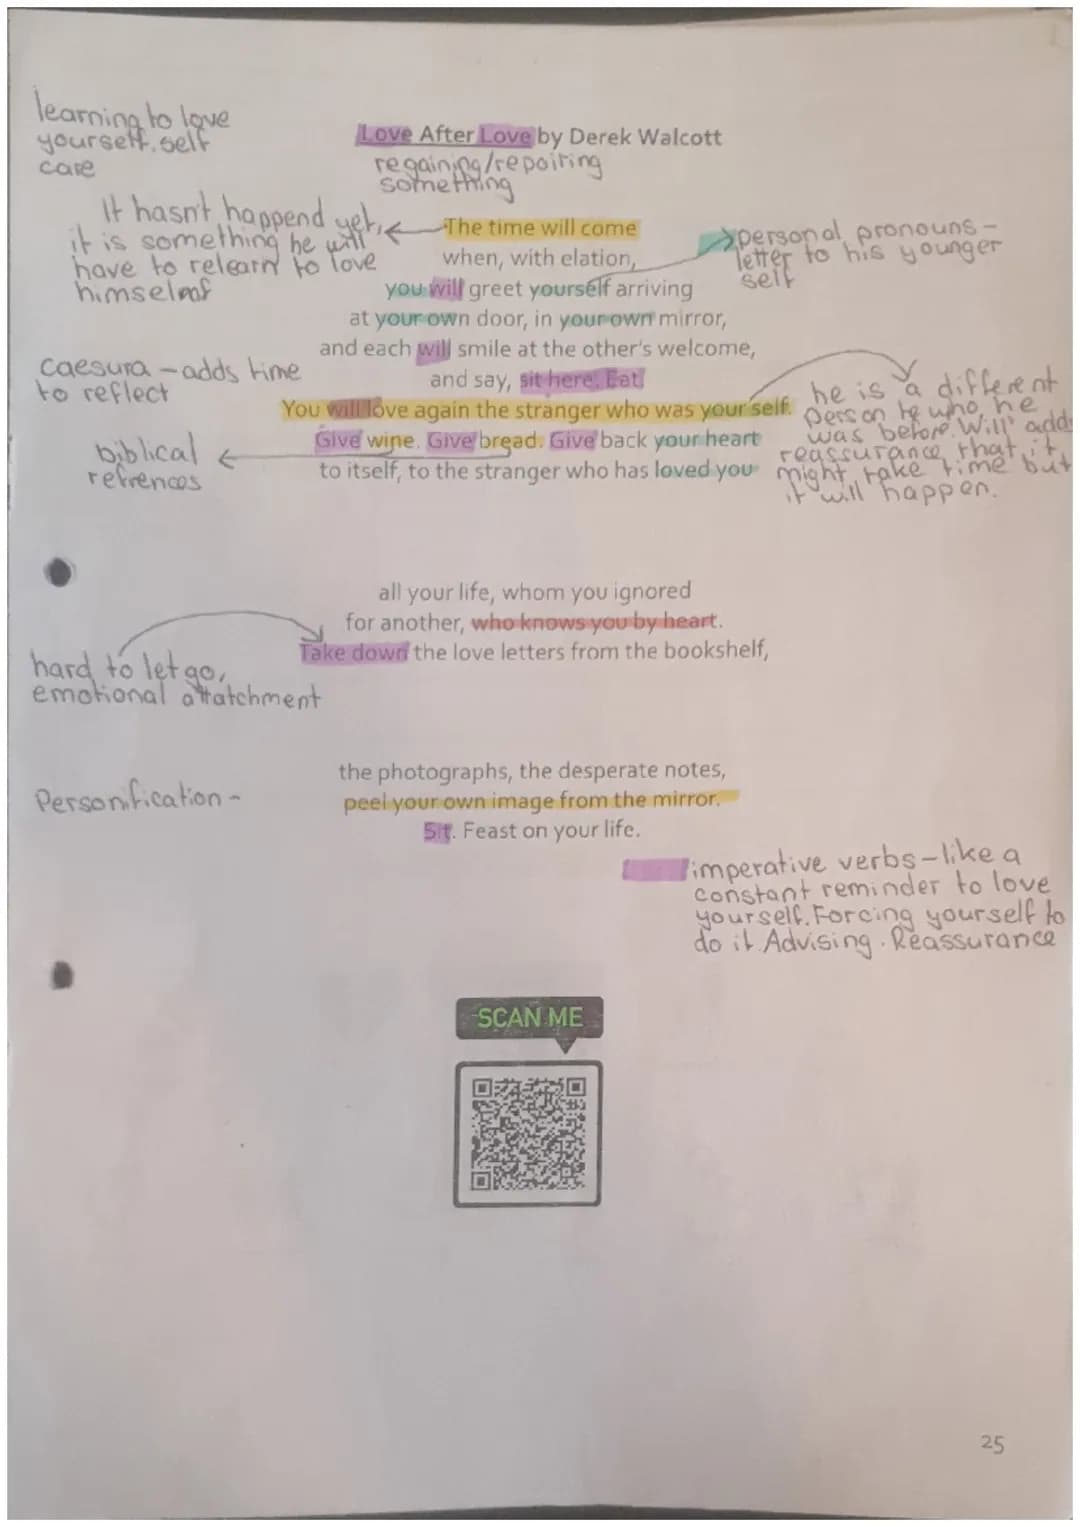 learning to love
yourself. self
care
Love After Love by Derek Walcott
regaining/repairing
something
It hasn't happend yet,
it is something he will
have to relearn to love
himself
The time will come
when, with elation,
you will greet yourself arriving
at your own door, in your own mirror,
and each will smile at the other's welcome,
and say, sit here. Eat.
You will love again the stranger who was your self.
Give wine. Give bread. Give back your heart
to itself, to the stranger who has loved you
personal pronouns -
letter to his younger
self
caesura - adds time
to reflect
biblical
refrences
he is a different
person to who he
was before. Will adds
reassurance that it
might take time but
it will happen.
all your life, whom you ignored
for another, who knows you by heart.
Take down the love letters from the bookshelf,
hard to let go,
emotional attatchment
the photographs, the desperate notes,
peel your own image from the mirror.
Sit. Feast on your life.
Personification -
imperative verbs - like a
constant reminder to love
yourself. Forcing yourself to
do it. Advising. Reassurance
SCAN ME
25